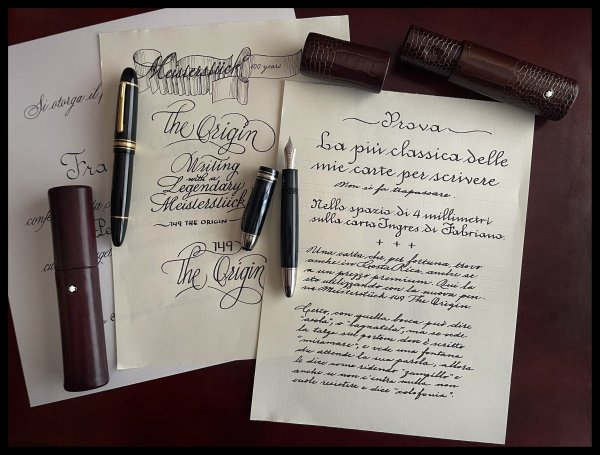 Si otorga il
Fra
Meisterstück
100 years
The Origin
Writing
with a
Legendary
Meisterstück
149 THE ORIGIN
149
The Origin
Prova
La più classica delle
mie carte per scrivere
Non si fa trapassare.
Nello spazio di 4 millimetri
sulla carta Ingres di Fabriano.
Una carta che, per fortuna, trovo
anche in Costa Rica, anche se
a un prezzo premium. Qui la
sto utilizzando con la nuova pen-
na Meisterstück 149 The Origin.
Certo, con quella bocca può dire
"asola", o "bagnatela", ma se vede
la targa sul portone dove è scritto
"miramare", e vede una fontana
che attende la sua parola, allora
le dice come ridendo "zampillo" e
anche se non c'entra nulla non
vuole resistere e dice "colofonia".